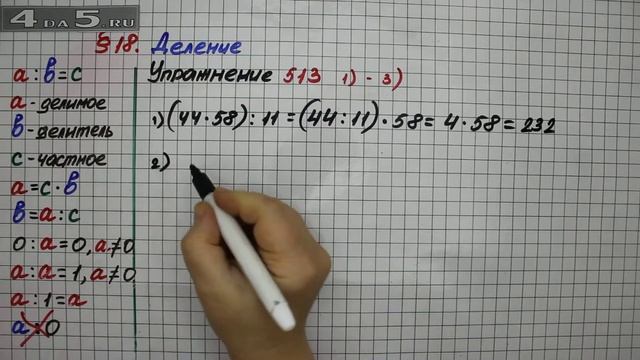 4 DA 5.RU
§18. Деление
Упражнение 513 1) - 3)
a : b = c
a - делимое
b - делитель
c - частное
a = c · b
b = a : c
0 : a = 0, a ≠ 0
a : a = 1, a ≠ 0
a : 1 = a
a : 0
1) (44 · 58) : 11 = (44 : 11) · 58 = 4 · 58 = 232
2)